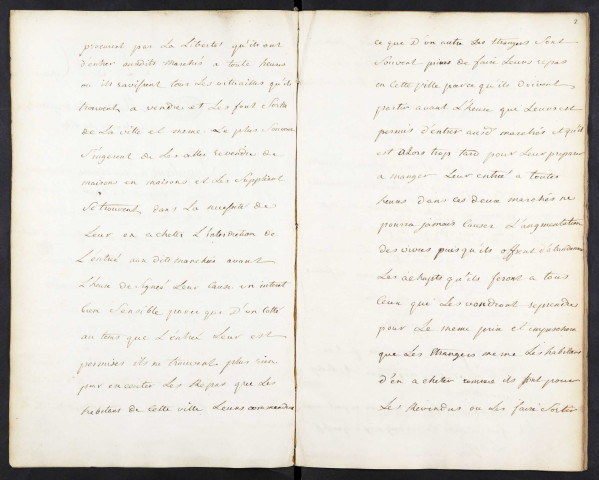 procurent par La Liberté qu'ils ont
d'entrer auxdits marchés a toute heure
ou ils ravissent tous Les victuailles qu'ils
trouvent a vendre et Les font Sortir
de La ville et meme Le plus Souvent
S'ingerent de Les aller revendre de
maisons en maisons et Les Suppliant
Se trouvent dans La necessité de
Leur en acheter L'interdiction de
L'entrée aux dits marchés avant
L'heure de Signée Leur Cause un interet
bien Sensible parce que D'un Cotté
au tems que L'entrée Leur est
permises ils ny trouvent plus rien
pour executer Les Repas que Les
habitans de cette ville Leurs commandent
2
ce que D'un autre Les Etrangers Sont
Souvent privés de faire Leurs repas
en cette ville parce qu'ils doivent
partir avant L'heure que Leurs est
permis d'entrer auxd marchés et qu'il
est alors trop tard pour Leur preparer
a manger Leur entrée a toutes
heures dans ces deux marchés ne
pourra jamais Causer L'augmentation
des vivres puis qu'ils offrent d'abandonner
Les achapts qu'ils feront a tous
Ceux qui Les voudront reprendre
pour Le meme prix et empechera
que Les Etrangers meme Les habitans
d'en acheter comme ils font pour
Les Revendre ou Les faire Sortir